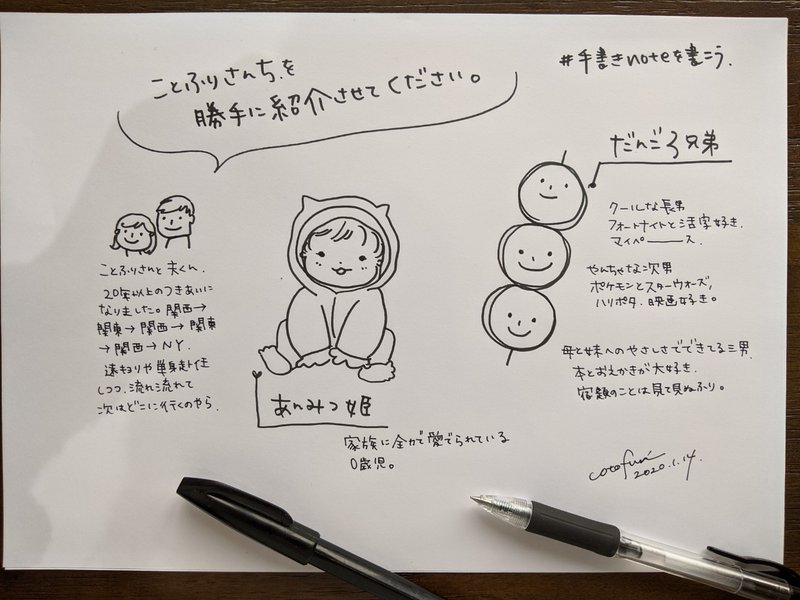 ことふりさんちを
勝手に紹介させてください。
#手書きnoteを書こう.
ことふりさんと夫くん.
20年以上のつきあいに
なりました。関西→
関東→関西→関東
→関西→NY.
遠キョリや単身赴任
しつつ、流れ流れて
次はどこに行くのやら.
あんみつ姫
家族に全力で愛でられている
0歳児。
だんご3兄弟
クールな長男
フォートナイトと活字好き.
マイペース.
やんちゃな次男
ポケモンとスターウォーズ,
ハリポタ. 映画好き。
母と妹へのやさしさでできてる三男.
本とおえかきが大好き.
宿題のことは見て見ぬふり。
cotofuri
2020.1.14.